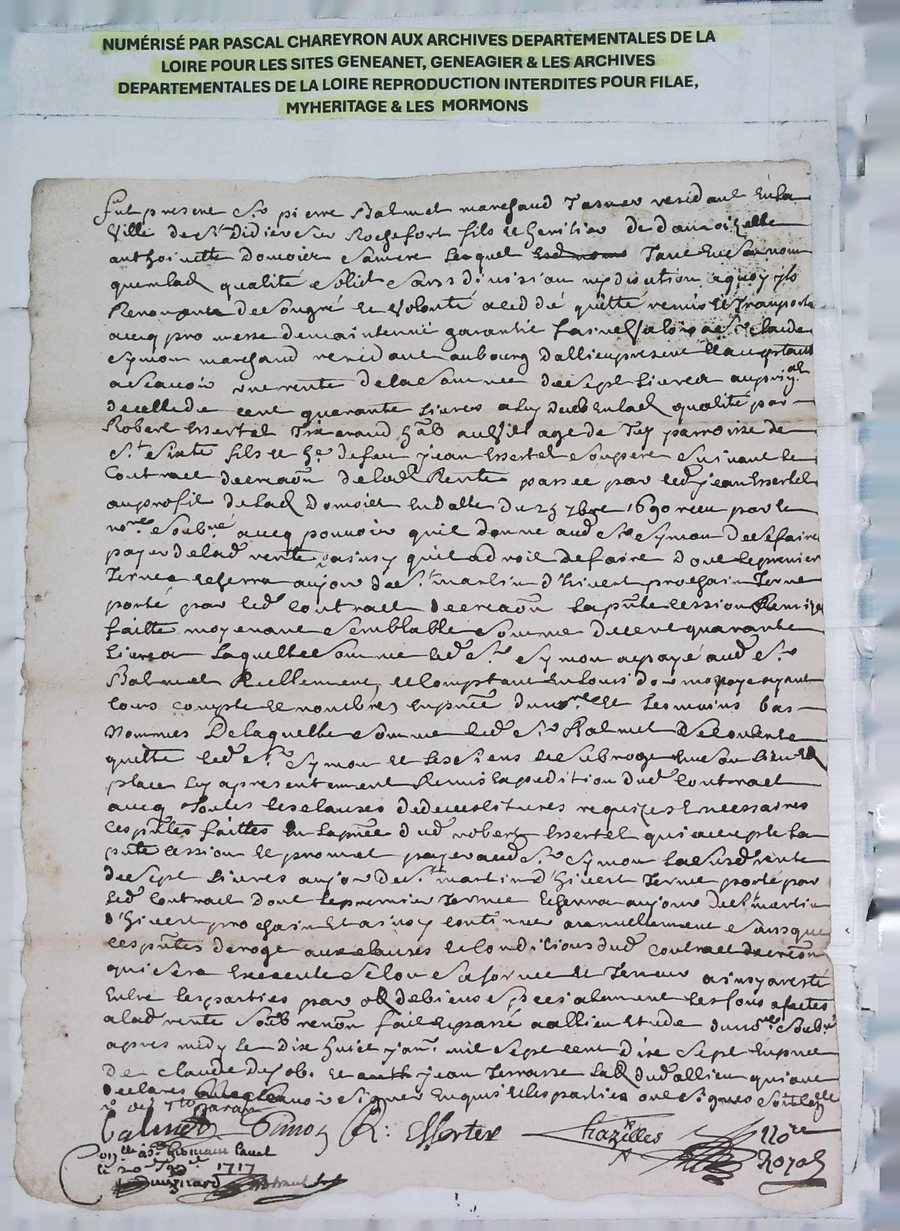 NUMÉRISÉ PAR PASCAL CHAREYRON AUX ARCHIVES DEPARTEMENTALES DE LA
LOIRE POUR LES SITES GENEANET, GENEAGIER & LES ARCHIVES
DEPARTEMENTALES DE LA LOIRE REPRODUCTION INTERDITES POUR FILAE,
MYHERITAGE & LES MORMONS
fut present Sr pierre Balmet marchand residant en la
ville de St Didier sur Rochefort fils et heritier de damoizelle
anthoinette Domoier sa mere lequel tant en son nom
quen lad qualité solid sans division ny discution a quoy
Renonçant de son gré et volonté a ceddé quitté remis et transporté
avecq promesse de maintenir garantir a Sr Claude
Symon marchand residant au bourg dallieu present et acceptant
a scavoir une rente de la somme de sept livres au prix pal
de celle de cent quarante livres a luy deub en lad qualité par
Robert Essertel hab au village de parroisse de
St Sixte fils et hr de feu jean Essertel son pere suivant le
Contract de creaon de lad Rente passée par led jean Essertel
au proffit de lad Domoier en datte du 25 7bre 1690 receu par le
nore soubné avecq pouvoir quil donne aud Sr Symon de se faire
payer de lad rente ainsy quil a droit de faire dont le premier
Terme escherra au jour de St martin d'hivert prochain Terme
porté par led Contract de creaon la pnte cession Remise
faitte moyenant semblable somme de cent quarante
livres laquelle somme led Sr Symon a payé aud Sr
Balmet Reellement et comptant en Louis dor monoye ayant
cours compté et nombrés en pnce du nore et tesmoins bas
Nommés De laquelle somme led Sr Balmet se contente
quitte led Sr Symon et les siens le subroge en son lieu et
place luy a presentement Remis Expedition dud Contract
avecq Toutes les clauses requizes et necessaires
ces pntes faittes en la pnce dud robert Essertel qui accepte la
pnte cession et promet payer aud Sr Symon la susd rente
de sept livres au jour de St martin d'hivert Terme porté par
led Contract dont le premier Terme escherra au jour de St martin
d'hivert prochain et ainsy continuer annuellement sans que
ces pntes deroge aux clauses et conditions dud Contract de creaon
qui sera Executé selon sa forme et Teneur ainsy aresté
Entre les parties par obl de biens specialement les fons afectés
a lad rente soub renon fait et passé a allieu etude du nore soubné
apres midy le dix huict janr mil sept cent dix sept en pnce
de claude et jean Terrasse dud allieu qui ont
declaré ne scavoir signer enquis et les parties ont signés
Balmet Simon R: Essertel Chazelles Nore
Royal
1717